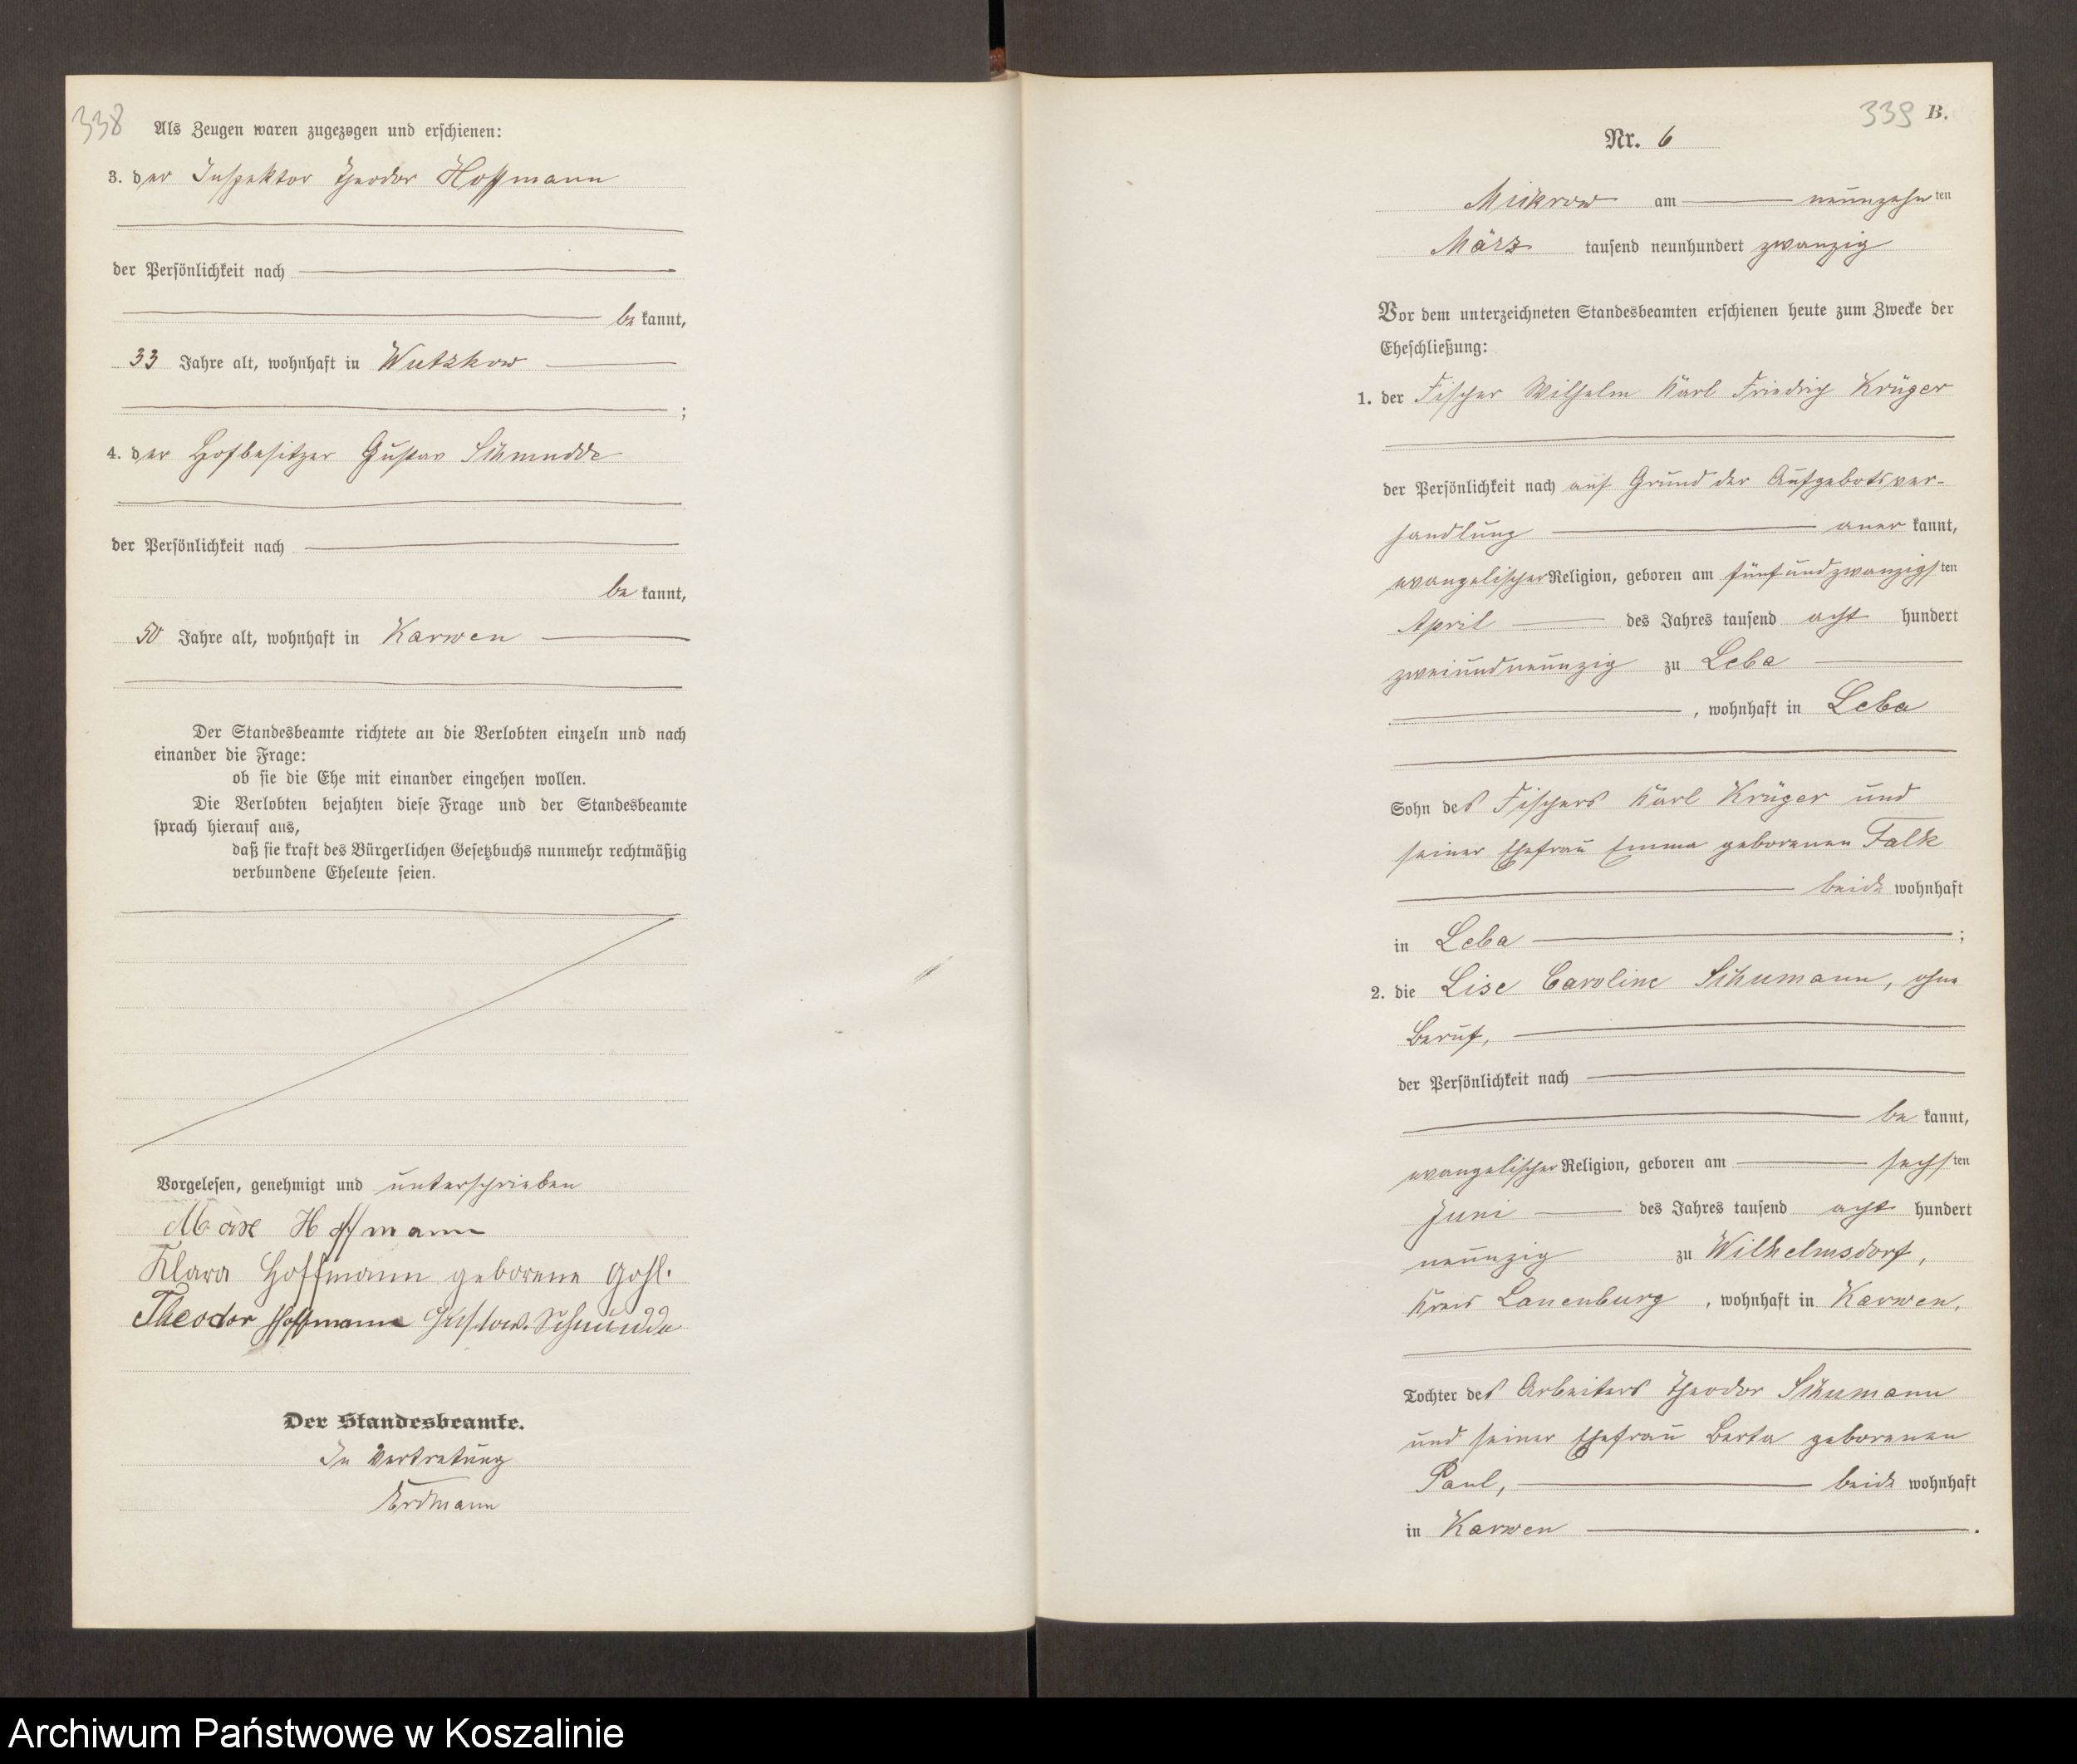 338
Als Zeugen waren zugezogen und erschienen:
3. der Inspektor Theodor Hoffmann
der Persönlichkeit nach
be kannt,
33 Jahre alt, wohnhaft in Wutzkow
;
4. der Hofbesitzer Gustav Schmudde
der Persönlichkeit nach
be kannt,
50 Jahre alt, wohnhaft in Karwen
Der Standesbeamte richtete an die Verlobten einzeln und nach
einander die Frage:
ob sie die Ehe mit einander eingehen wollen.
Die Verlobten bejahten diese Frage und der Standesbeamte
sprach hierauf aus,
daß sie kraft des Bürgerlichen Gesetzbuchs nunmehr rechtmäßig
verbundene Eheleute seien.
Vorgelesen, genehmigt und unterschrieben
Max Hoffmann
Klara Hoffmann geborene Gohl.
Theodor Hoffmann Gustav Schmudde
Der Standesbeamte.
In Vertretung
Erdmann
339 B.
Nr. 6
Mickrow am neunzehn ten
März tausend neunhundert zwanzig
Vor dem unterzeichneten Standesbeamten erschienen heute zum Zwecke der
Eheschließung:
1. der Fischer Wilhelm Karl Friedrich Krüger
der Persönlichkeit nach auf Grund der Aufgebotsver-
handlung aner kannt,
evangelischer Religion, geboren am fünfundzwanzigs ten
April des Jahres tausend acht hundert
zweiundneunzig zu Leba
, wohnhaft in Leba
Sohn des Fischers Karl Krüger und
seiner Ehefrau Emma geborenen Falk
beide wohnhaft
in Leba ;
2. die Lise Caroline Schumann, ohne
Beruf,
der Persönlichkeit nach
be kannt,
evangelischer Religion, geboren am sechs ten
Juni des Jahres tausend acht hundert
neunzig zu Wilhelmsdorf,
Kreis Lauenburg , wohnhaft in Karwen,
Tochter des Arbeiters Theodor Schumann
und seiner Ehefrau Berta geborenen
Paul, beide wohnhaft
in Karwen .
Archiwum Państwowe w Koszalinie